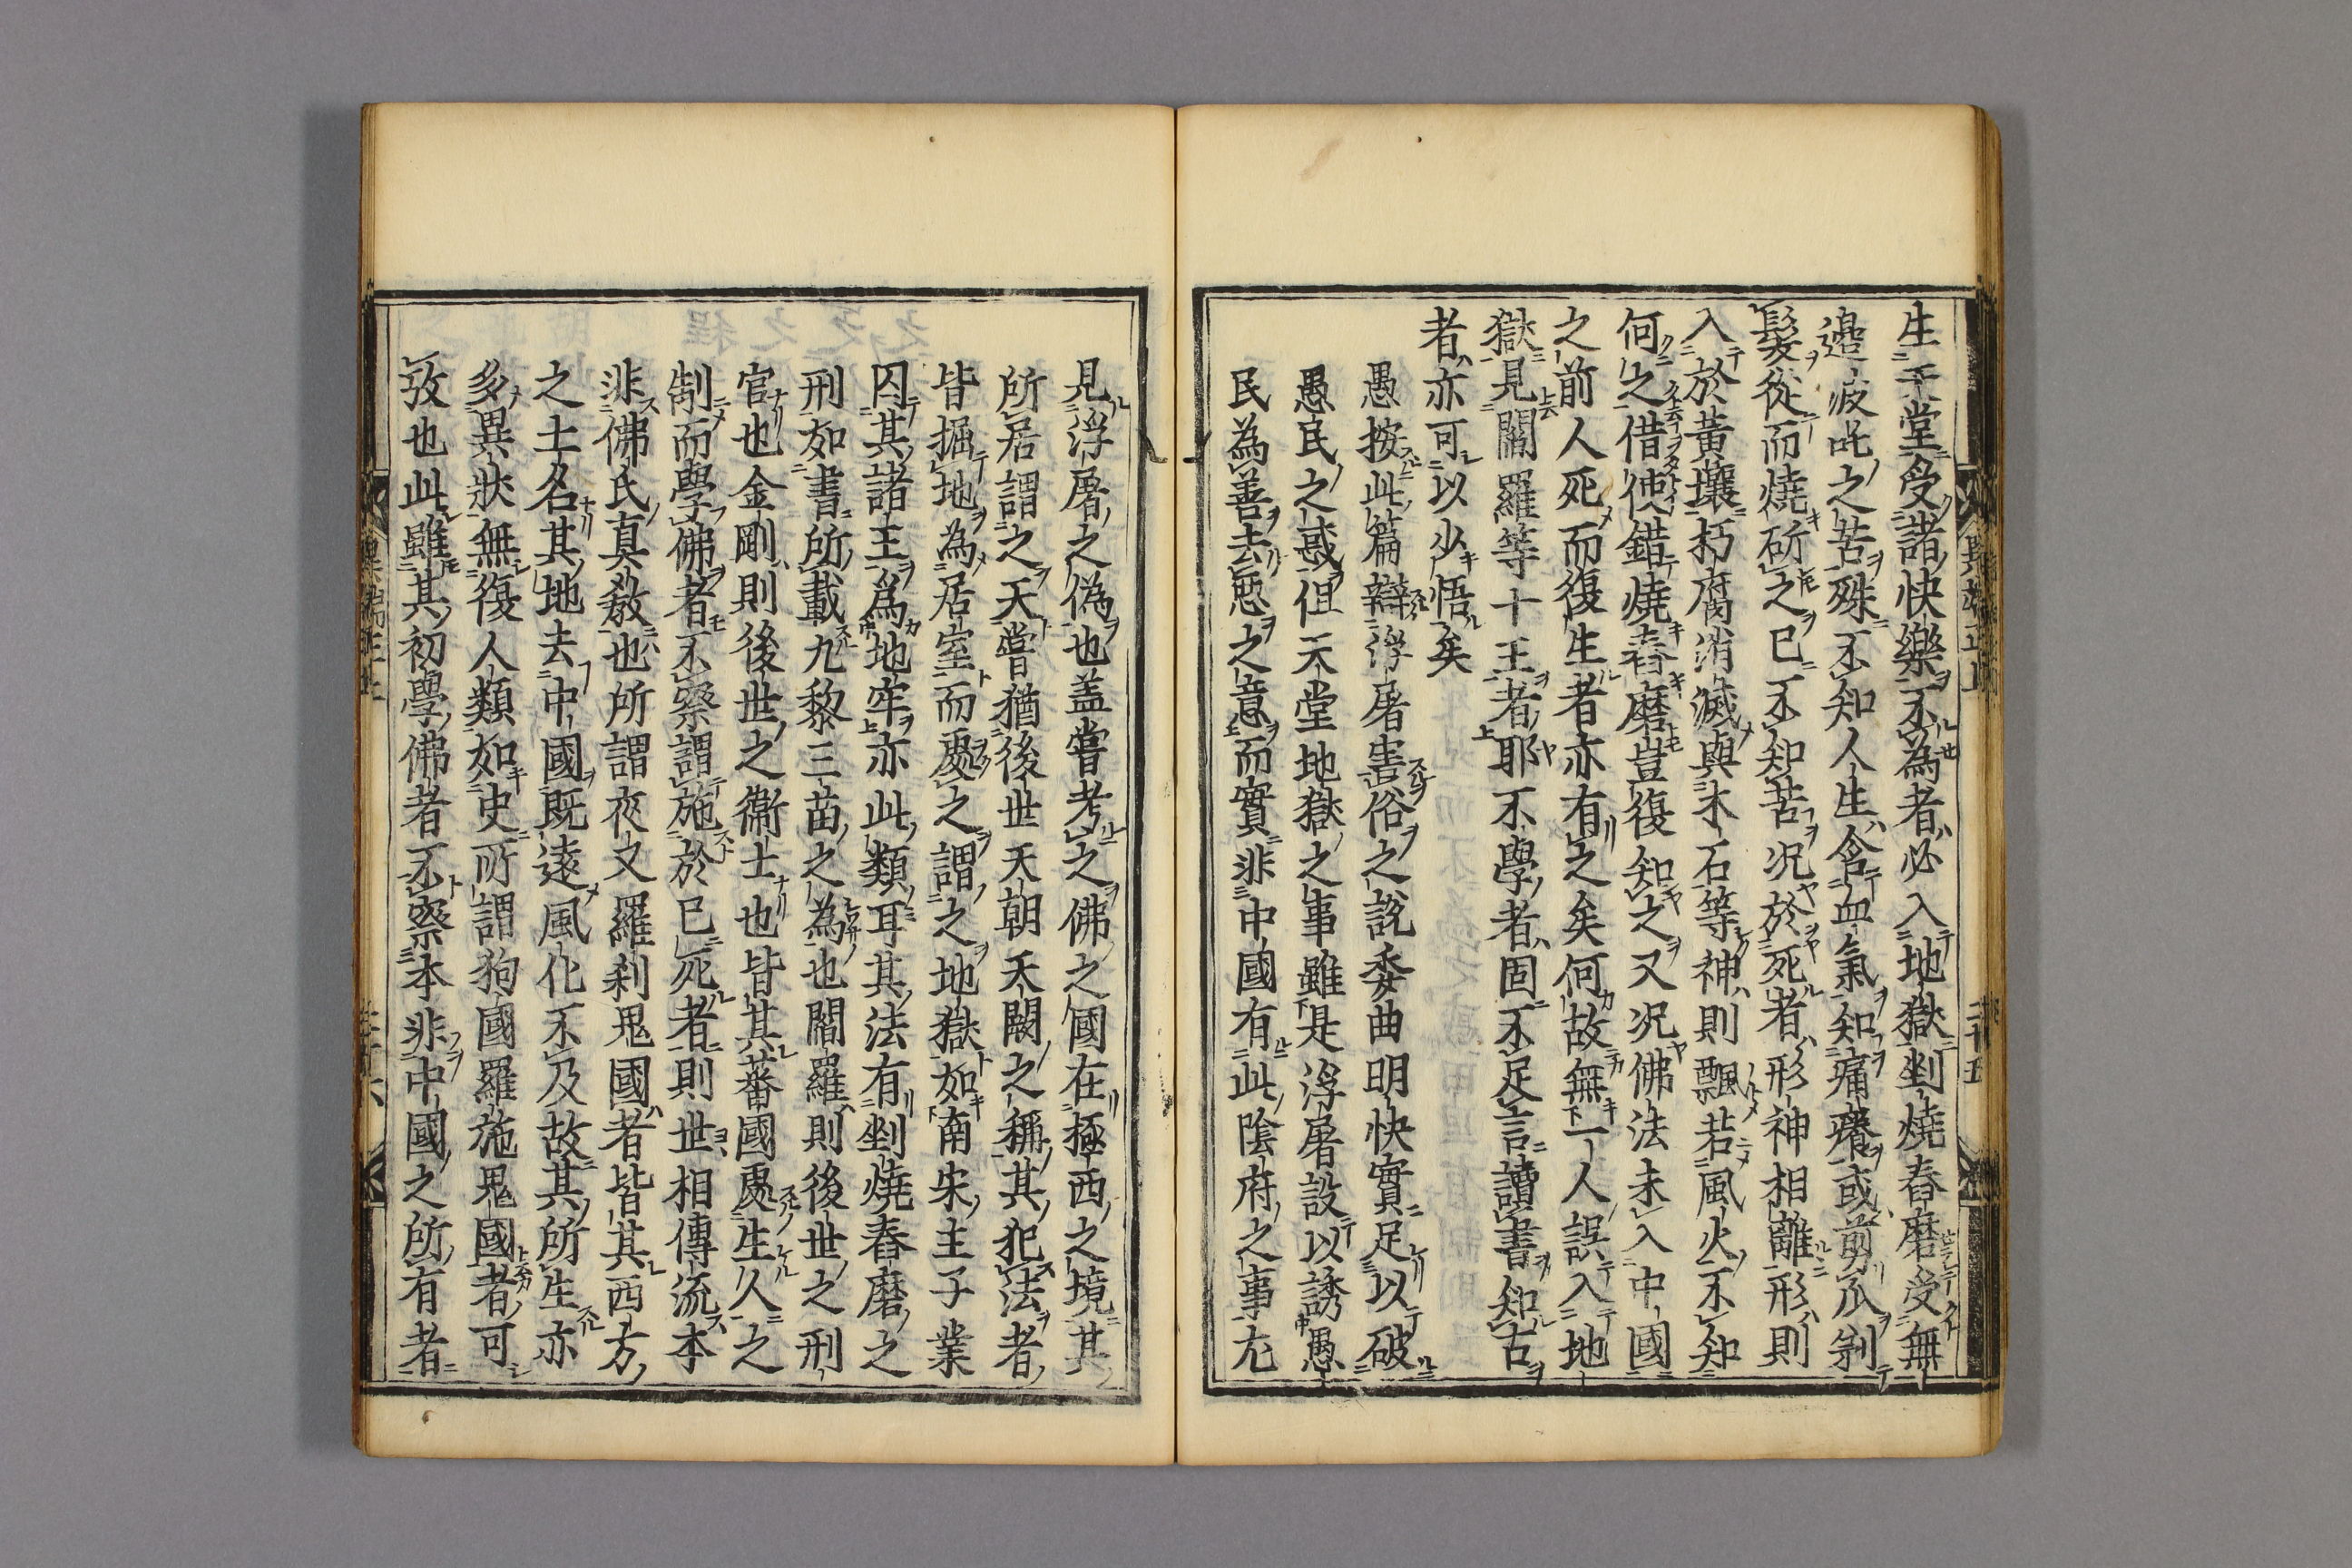 生天堂受諸快樂不為者必入地獄剉燒舂磨受無
邉波吒之苦殊不知人生含血氣知痛癢或剪爪剃
髮從而燒斫之已不知苦况於死者形神相離形則
入於黄壤朽腐消滅與木石等神則飄若風火不知
何之借使錯燒舂磨豈復知之又况佛法未入中國
之前人死而復生者亦有之矣何故無一人誤入地
獄見閻羅等十王者耶不學者固不足言讀書知古
者亦可以少悟矣
愚按此篇辯浮屠害俗之說委曲明快實足以破
愚民之惑但天堂地獄之事雖是浮屠設以誘愚
民為善去惡之意而實非中國有此陰府之事尤
見浮屠之偽也盖嘗考之佛之國在極西之境其
所居謂之天嘗猶後世天朝天闕之稱其犯法者
皆掘地為居室而處之謂之地獄如南宋主子業
囚其諸王為地牢亦此類耳其法有剉燒舂磨之
刑如書所載九黎三苗之為也閻羅則後世之刑
官也金剛則後世之衞士也皆其蕃國處生人之
制而學佛者不察謂施於已死者則世相傳流本
非佛氏真教也所謂夜叉羅刹鬼國者皆其西方
之土名其地去中國既遠風化不及故其所生亦
多異狀無復人類如史所謂狗國羅施鬼國者可
攷也此雖其初學佛者不察本非中國之所有者